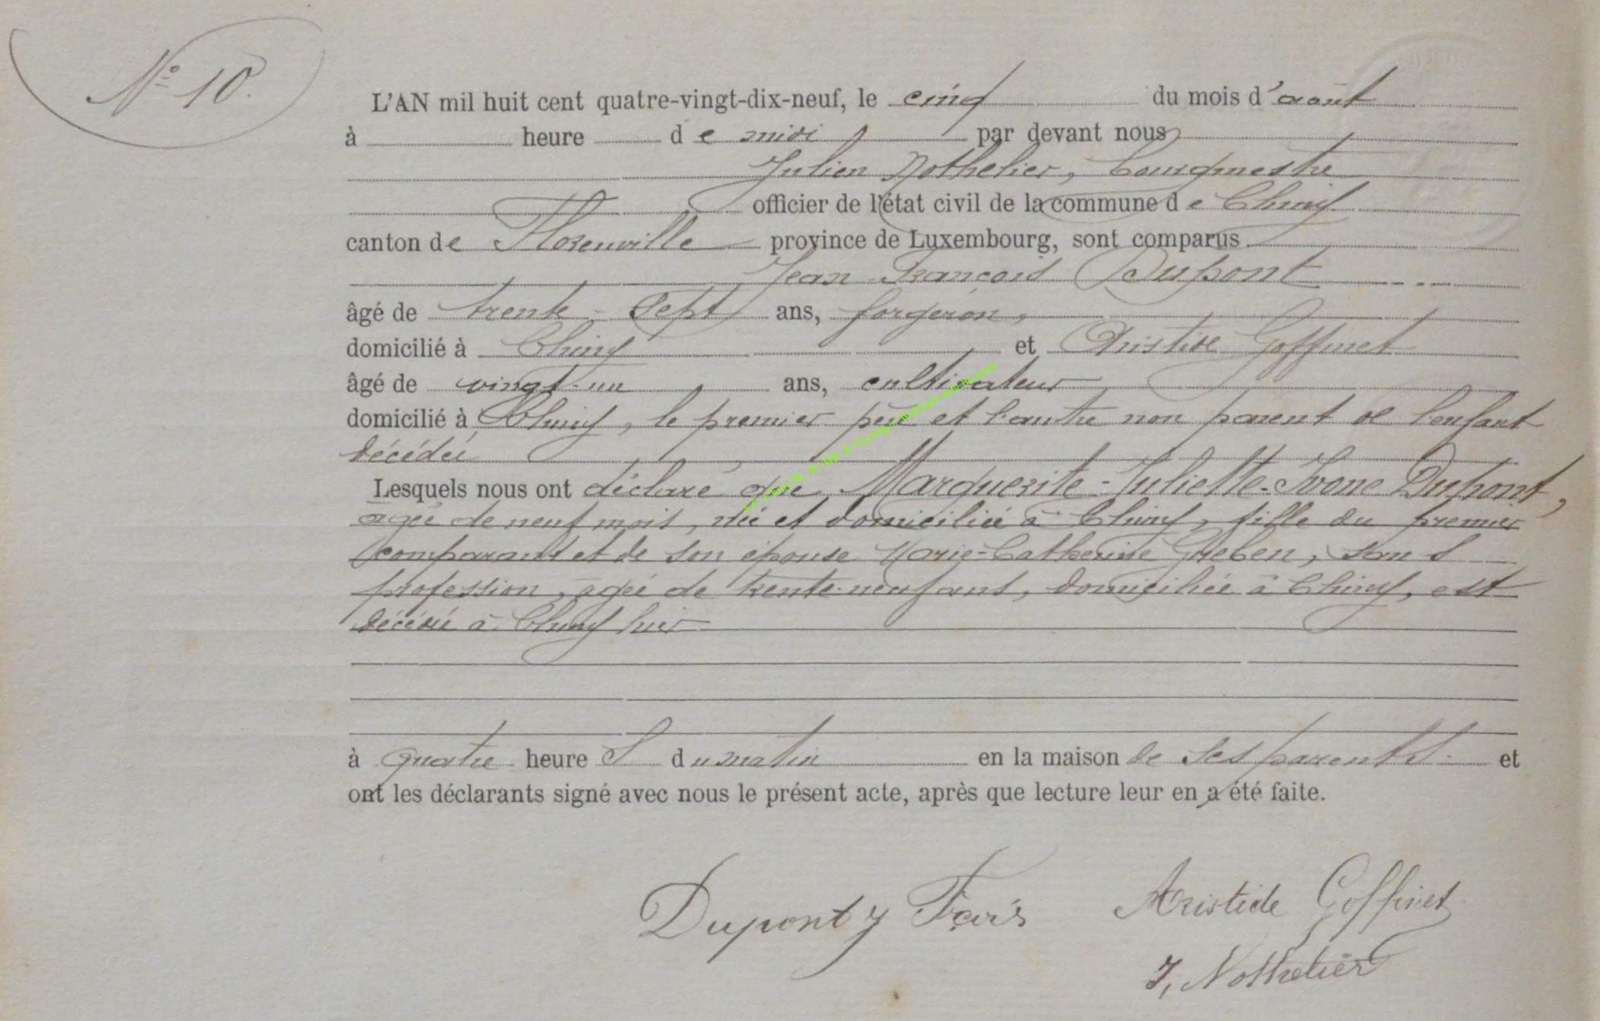 N° 10.
L'AN mil huit cent quatre-vingt-dix-neuf, le cinq du mois d'août
à heure de midi par devant nous
Julien Nothelier, bourgmestre
officier de l'état civil de la commune de Chiny
canton de Florenville province de Luxembourg, sont comparus
Jean François Dupont
âgé de trente-sept ans, forgeron,
domicilié à Chiny et Aristide Goffinet
âgé de vingt-un ans, cultivateur
domicilié à Chiny, le premier père et l'autre non parent de l'enfant
décédée
Lesquels nous ont déclaré que Marguerite-Juliette-Ivone Dupont,
agée de neuf mois, née et domiciliée à Chiny, fille du premier
comparant et de son épouse Marie-Catherine Greben, sans
profession, agée de trente-neuf ans, domiciliée à Chiny, est
décédée à Chiny hier
à quatre heures du matin en la maison de ses parents et
ont les déclarants signé avec nous le présent acte, après que lecture leur en a été faite.
Dupont J Fcois Aristide Goffinet
J, Nothelier